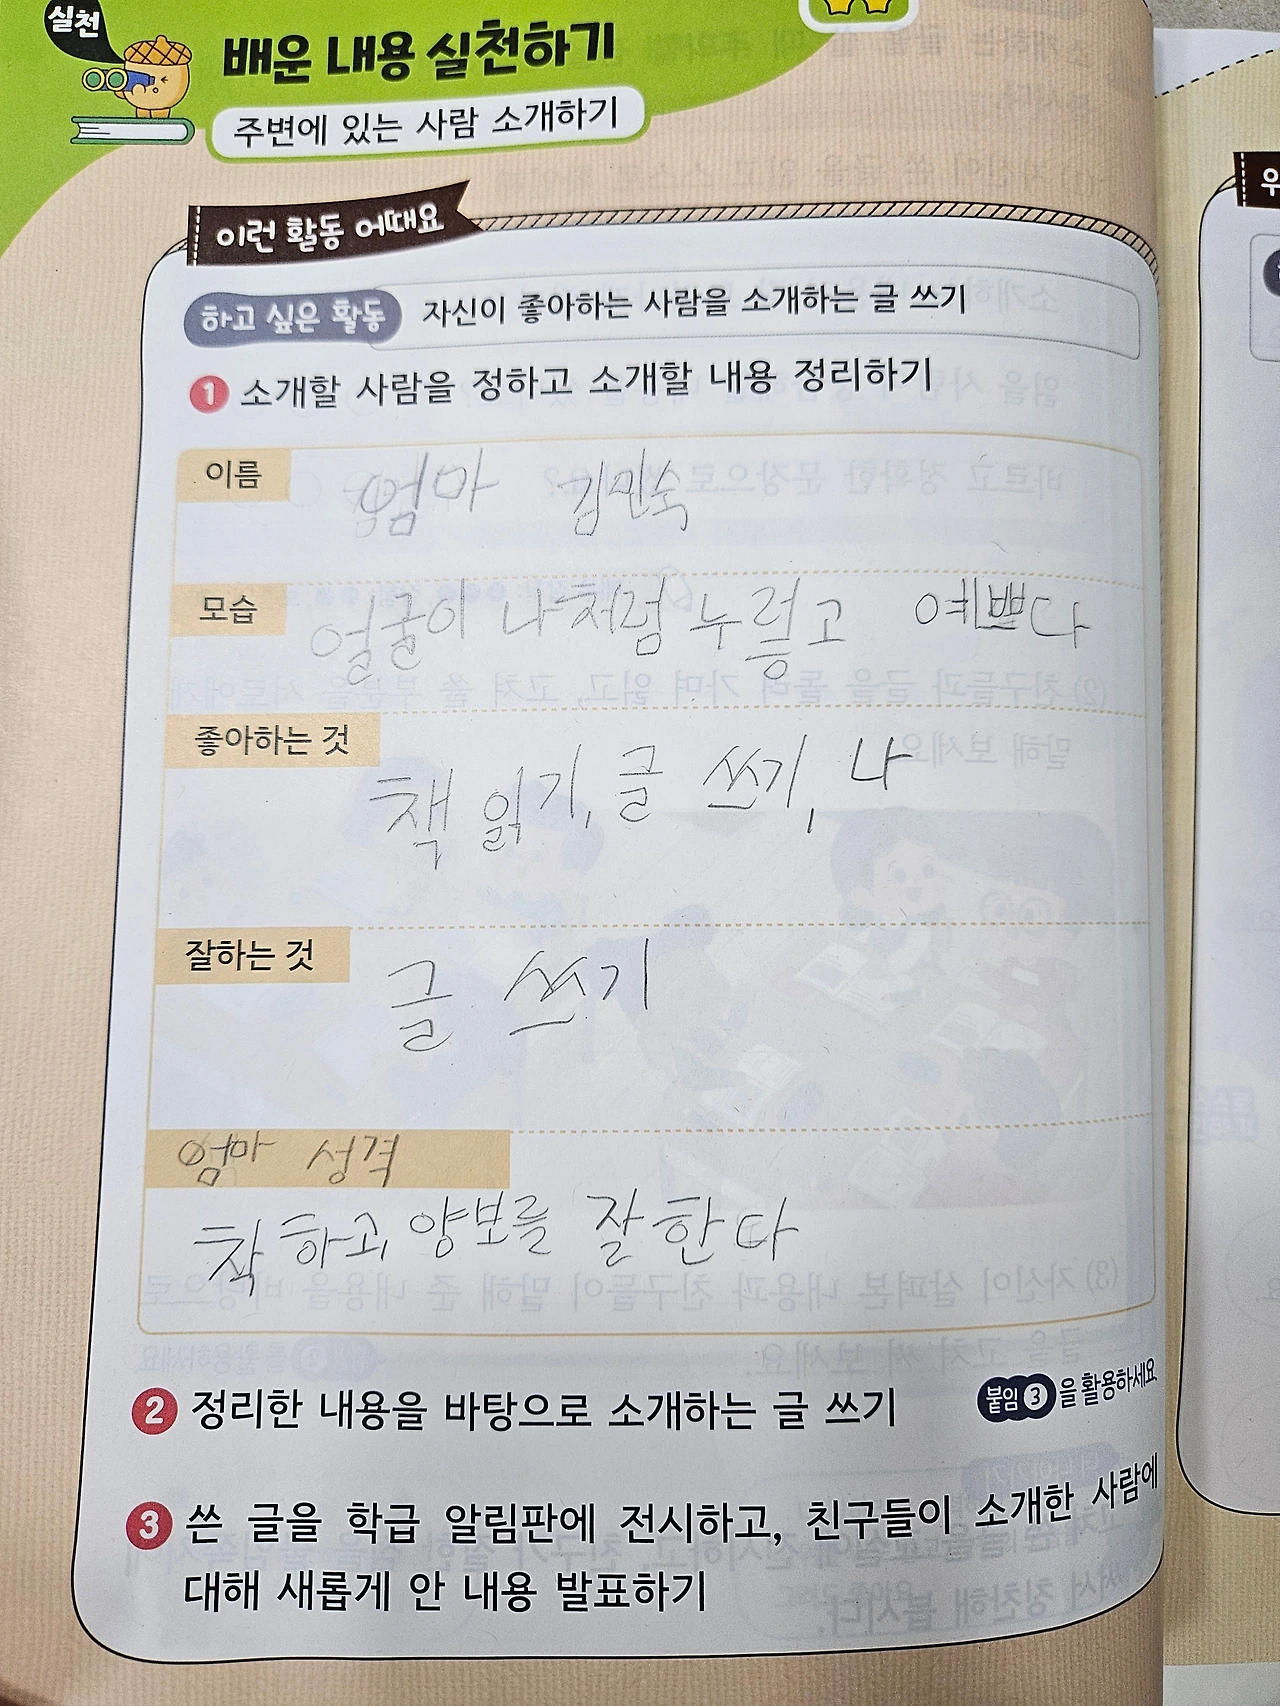 실천
배운 내용 실천하기
주변에 있는 사람 소개하기
이런 활동 어때요
하고 싶은 활동 자신이 좋아하는 사람을 소개하는 글 쓰기
1 소개할 사람을 정하고 소개할 내용 정리하기
이름
엄마 김민숙
모습
얼굴이 나처럼 누렇고 예쁘다
좋아하는 것
책 읽기, 글 쓰기, 나
잘하는 것
글 쓰기
엄마 성격
착하고, 양보를 잘한다
2 정리한 내용을 바탕으로 소개하는 글 쓰기
붙임 3 을 활용하세요
3 쓴 글을 학급 알림판에 전시하고, 친구들이 소개한 사람에
대해 새롭게 안 내용 발표하기